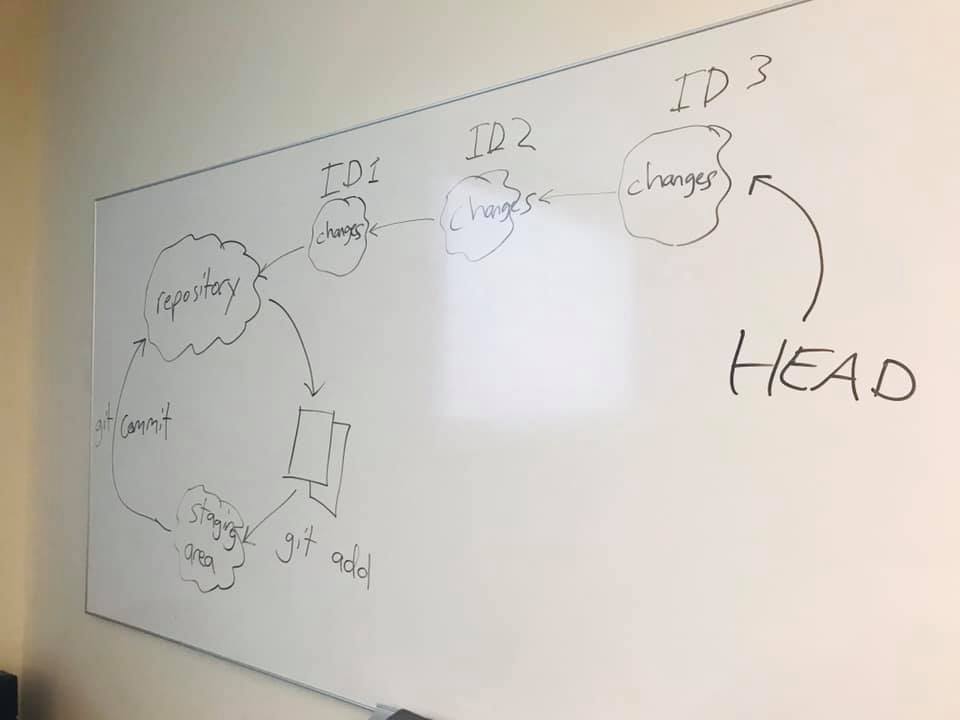 ID 3
ID2
ID1
changes
changes
changes
repository
HEAD
git commit
staging
area
git add